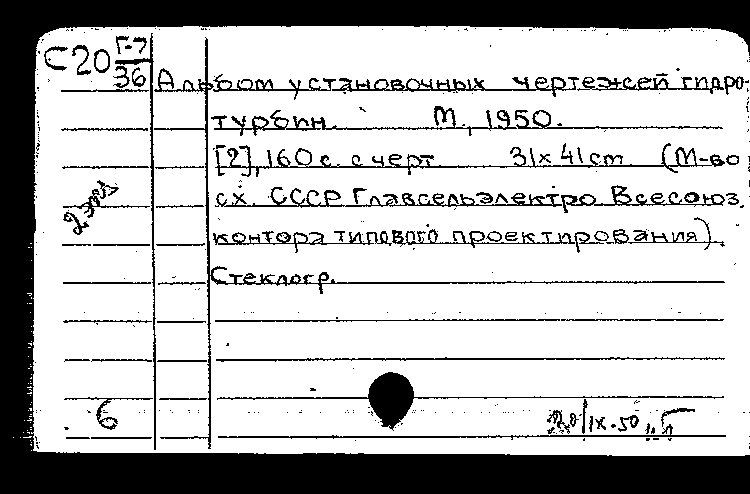 С20 Г-7/36
Альбом установочных чертежей гидро-
турбин. М., 1950.
[2], 160 с. с черт. 31x41 cm (М-во
2 экз
с.х. СССР Главсельэлектро Всесоюз.
контора типового проектирования).
Стеклогр.
6
/IX-50